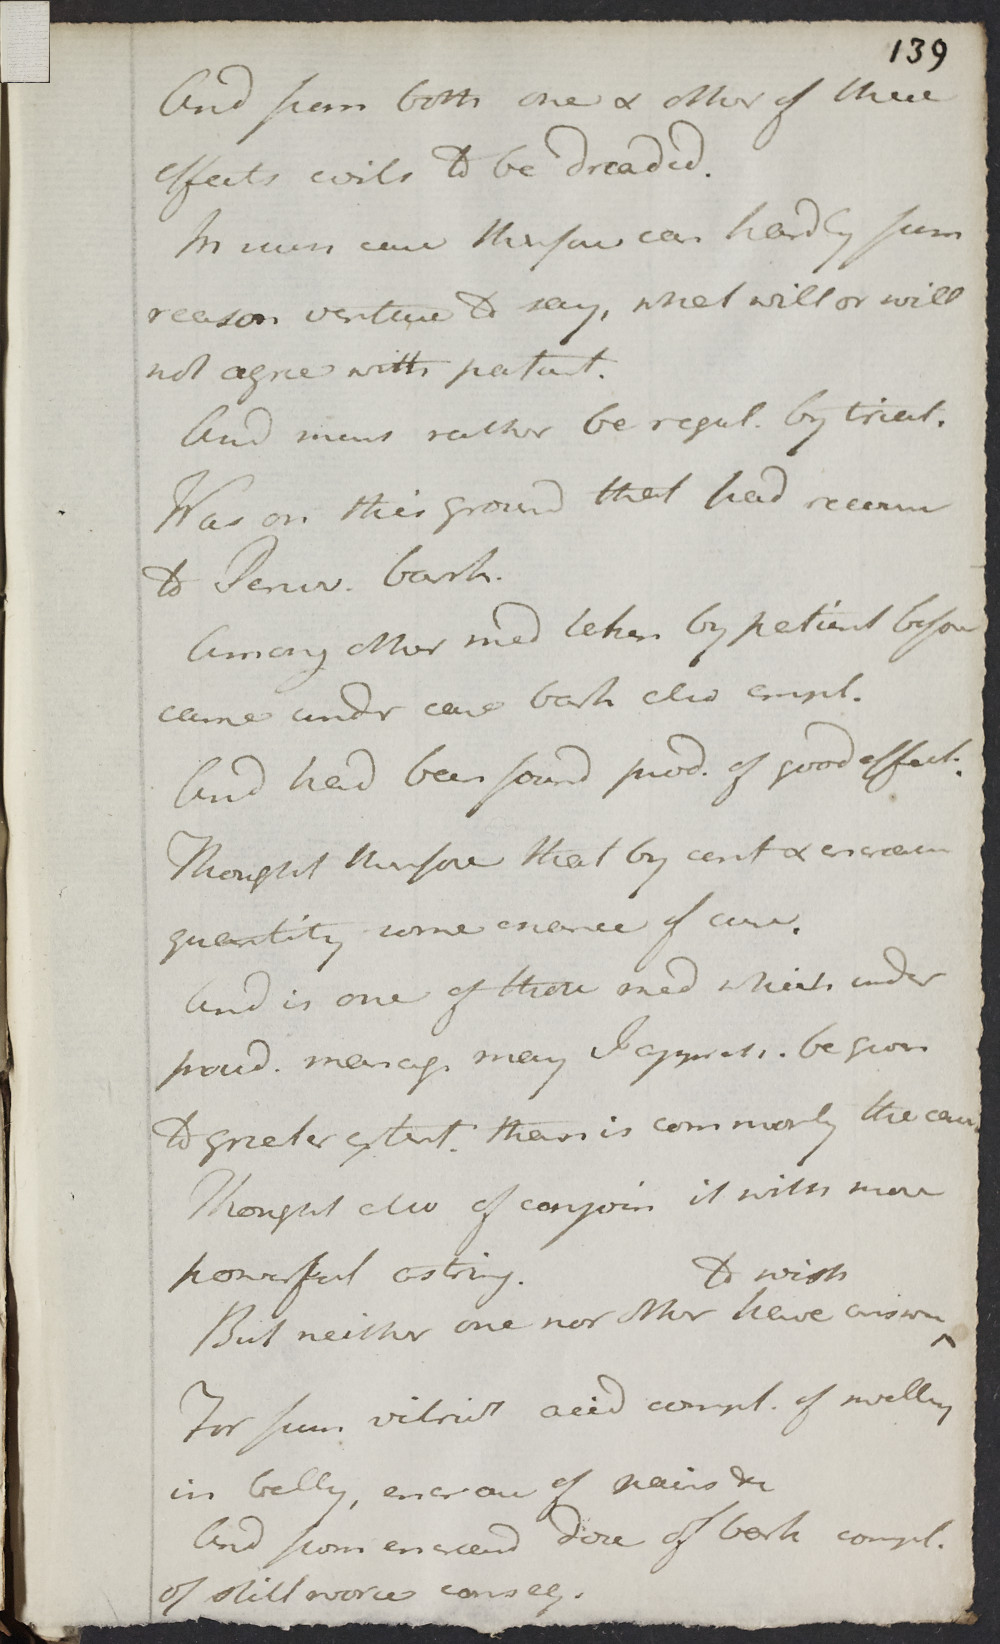 139
And from both one & other of these
effects evils to be dreaded.
In such case therefore can hardly from
reason venture to say, what will or will
not agree with patient.
And must rather be regul. by trial.
Was on this ground that had recourse
to Peruv. bark.
Among other med taken by patient before
came under care bark also empl.
And had been found prod. of good effect.
Thought therefore that by cont & encrease
quantity some chance of cure.
And is one of those med which under
prud. manag. may I appreh. be given
to greater extent. than is commonly the case
Thought also of conjoin it with more
powerful astring.
to wish
But neither one nor other have answer ^
For from vitriol acid compl. of swelling
in belly, encrease of pains &c
And from encreased dose of bark compl.
of still worse conseq.